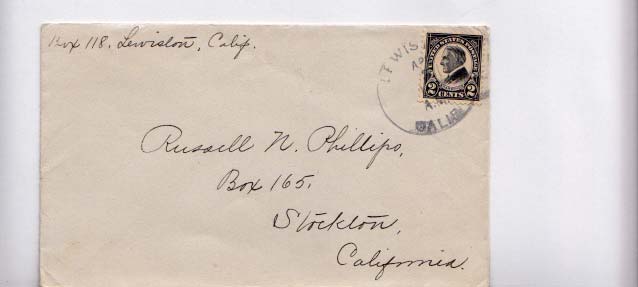 Box 118. Lewiston, Calif.
LEWIS
UNITED STATES POSTAGE
2 CENTS 2
A.M.
CALIF.
Russell N. Phillips,
Box 165.
Stockton,
California.